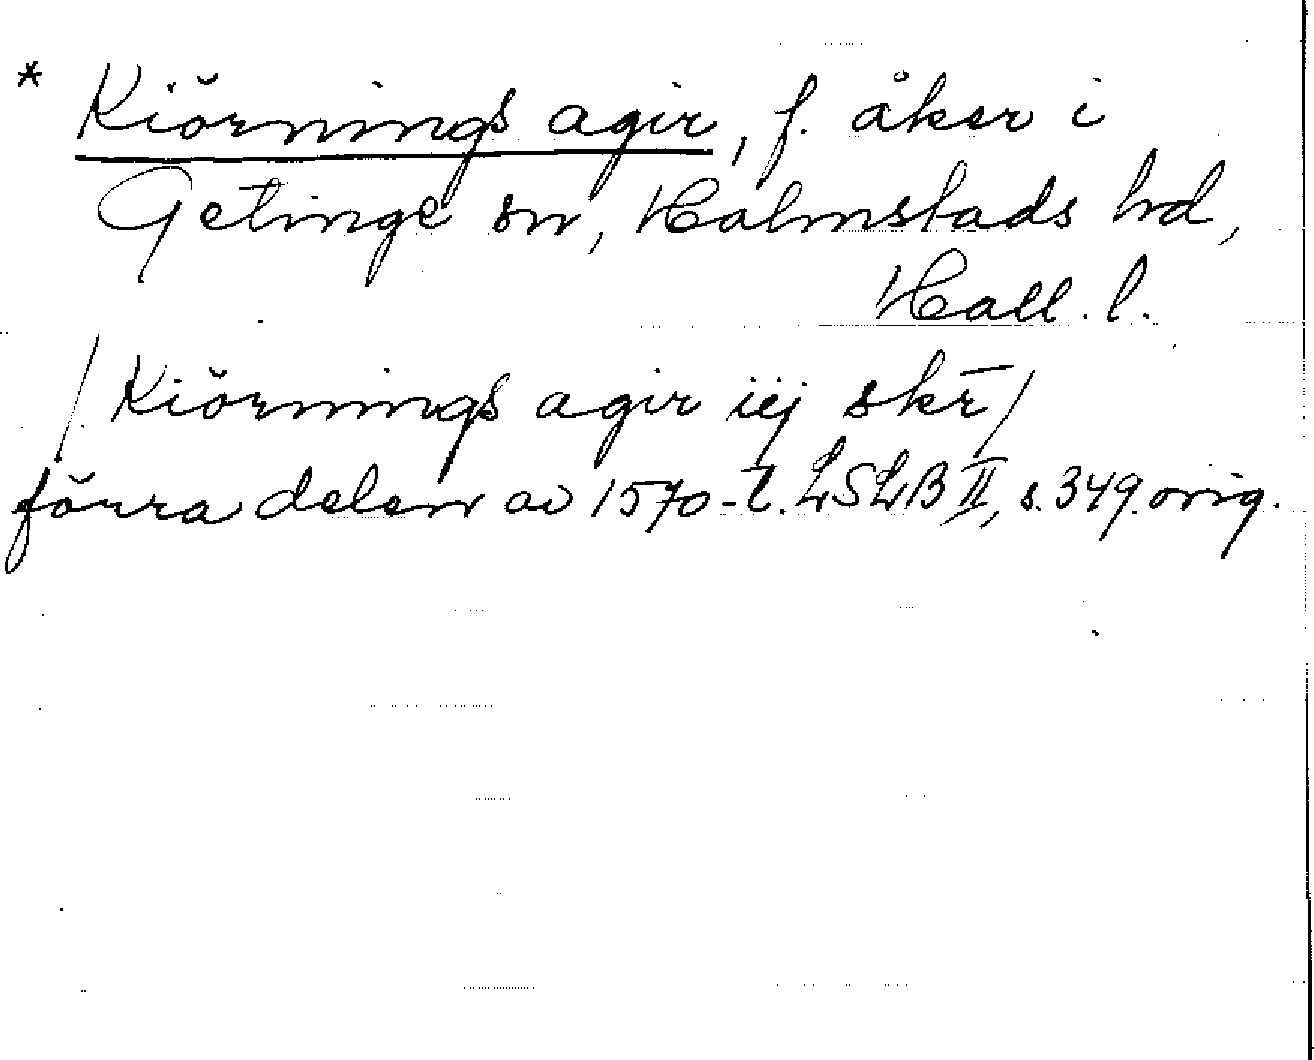 * Kiörnings agir, f. åker i
Getinge sn, Halmstads hd,
Hall. l.
/Kiörnings agir iij skr̄/
förra delen av 1570-t. LSLB II, s. 349. orig.